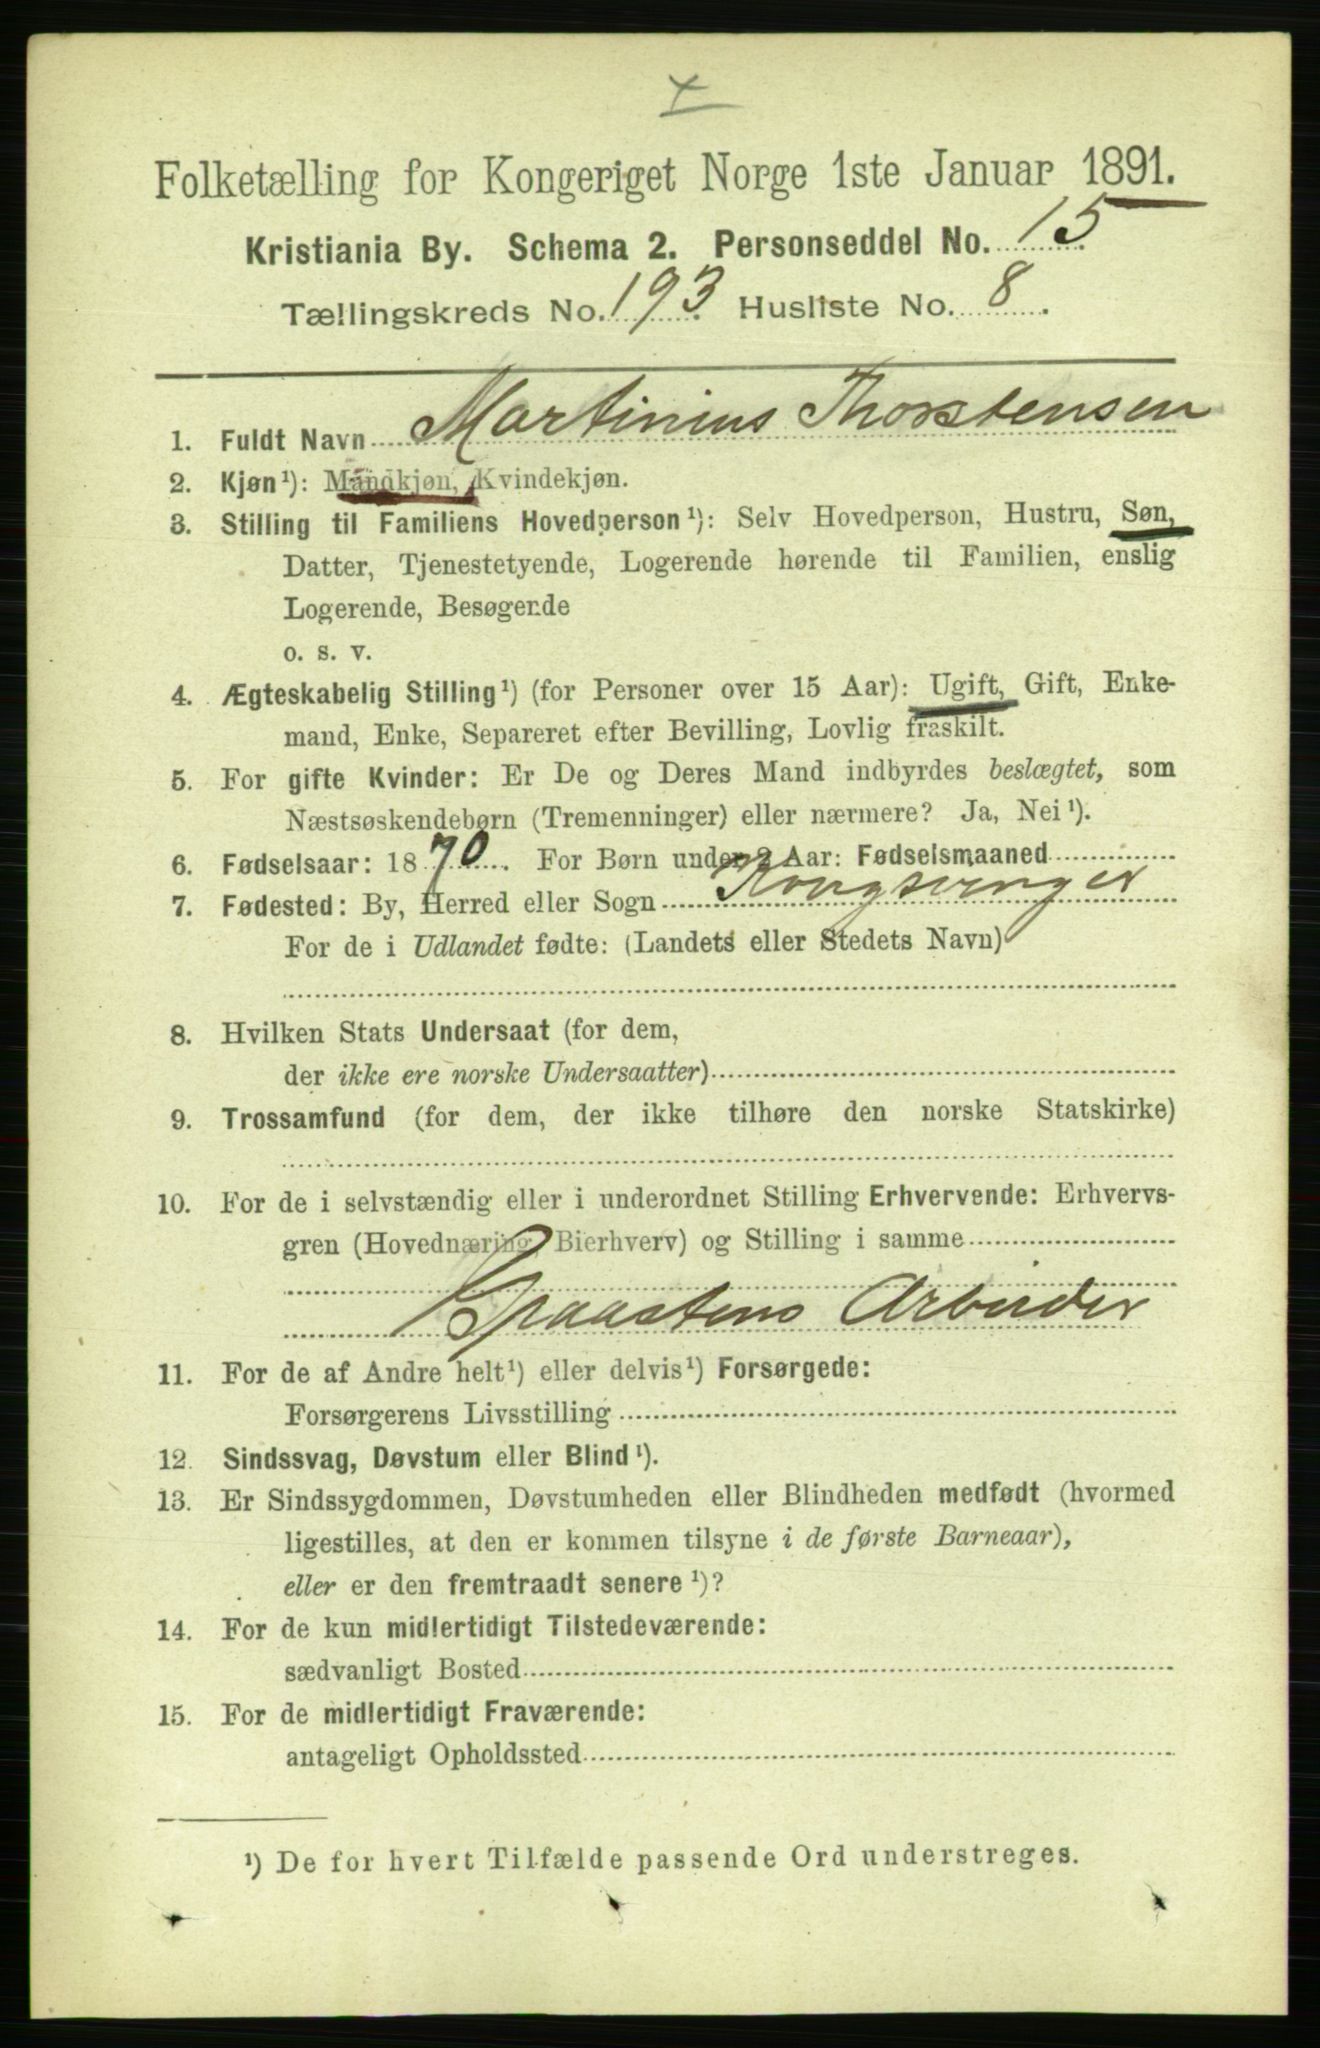 Folketælling for Kongeriget Norge 1ste Januar 1891.
Kristiania By. Schema 2. Personseddel No. 15
Tællingskreds No. 193 Husliste No. 8.
1. Fuldt Navn Martinius Thorstensen
2. Kjøn¹): Mandkjøn, Kvindekjøn.
3. Stilling til Familiens Hovedperson¹): Selv Hovedperson, Hustru, Søn,
Datter, Tjenestetyende, Logerende hørende til Familien, enslig
Logerende, Besøgende
o. s. v.
4. Ægteskabelig Stilling¹) (for Personer over 15 Aar): Ugift, Gift, Enke-
mand, Enke, Separeret efter Bevilling, Lovlig fraskilt.
5. For gifte Kvinder: Er De og Deres Mand indbyrdes beslægtet, som
Næstsøskendebørn (Tremenninger) eller nærmere? Ja, Nei¹).
6. Fødselsaar: 1870. For Børn under 2 Aar: Fødselsmaaned
7. Fødested: By, Herred eller Sogn Kongsvinger
For de i Udlandet fødte: (Landets eller Stedets Navn)
8. Hvilken Stats Undersaat (for dem,
der ikke ere norske Undersaatter)
9. Trossamfund (for dem, der ikke tilhøre den norske Statskirke)
10. For de i selvstændig eller i underordnet Stilling Erhvervende: Erhvervs-
gren (Hovednæring, Bierhverv) og Stilling i samme
Graastens Arbeider
11. For de af Andre helt¹) eller delvis¹) Forsørgede:
Forsørgerens Livsstilling
12. Sindssvag, Døvstum eller Blind¹).
13. Er Sindssygdommen, Døvstumheden eller Blindheden medfødt (hvormed
ligestilles, at den er kommen tilsyne i de første Barneaar),
eller er den fremtraadt senere¹)?
14. For de kun midlertidigt Tilstedeværende:
sædvanligt Bosted
15. For de midlertidigt Fraværende:
antageligt Opholdssted
¹) De for hvert Tilfælde passende Ord understreges.